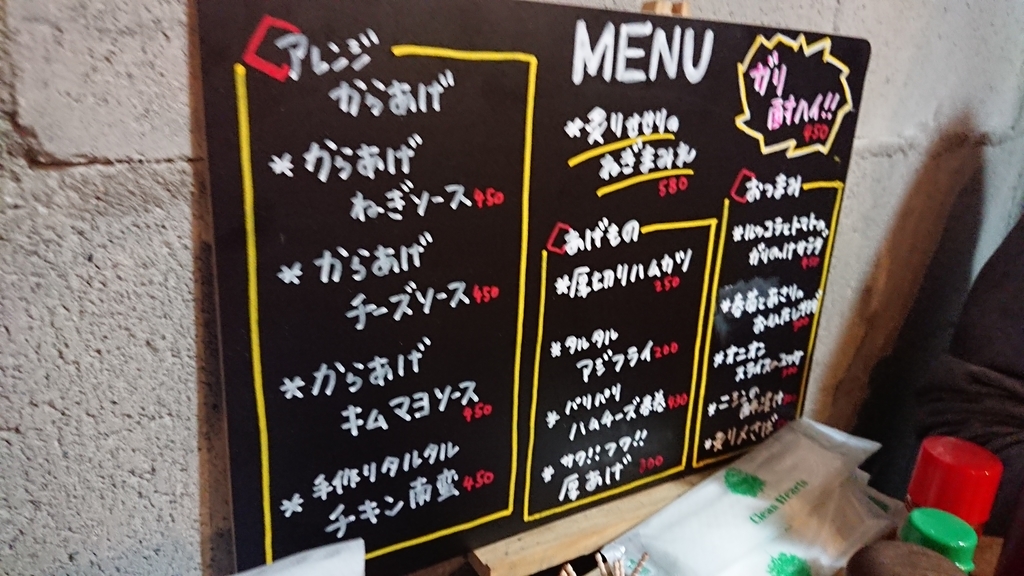 アレンジ
からあげ
*からあげ
ねぎソース 450
*からあげ
チーズソース 450
*からあげ
キムマヨソース
450
*手作りタルタル
チキン南蛮 450
MENU
*炙りせせりの
ねぎまみれ
580
あげもの
*厚切りハムカツ
250
*タルタル
アジフライ 200
*パリパリ
ハムチーズ春巻 430
*サク!!フワ!!
厚あげ 300
ガリ
酎ハイ!!
450
おつまみ
*ルッコラとトマトの
サラダ
450
*オニオン
スライス
*炙り〆さば
Clean Hearts